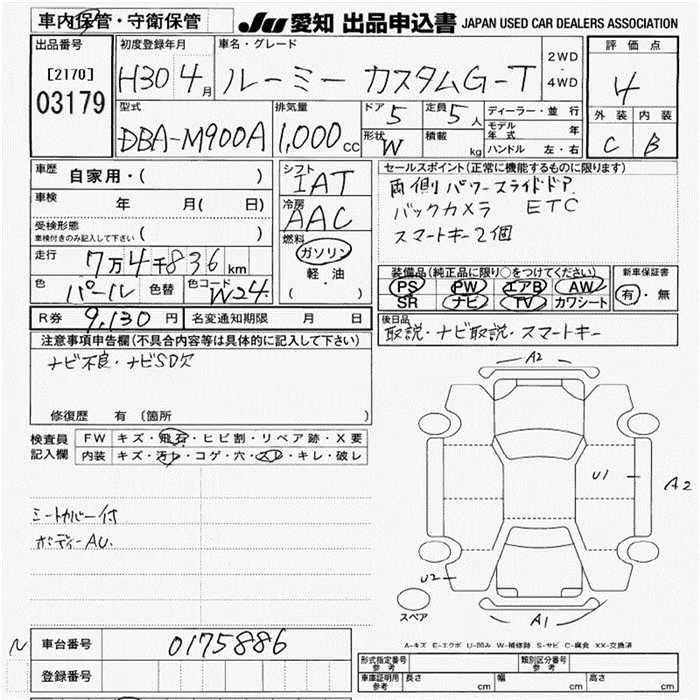 車内保管・守衛保管 JU 愛知 出品申込書 JAPAN USED CAR DEALERS ASSOCIATION
出品番号 初度登録年月 車名・グレード 評価点
[2170] H30 4月 ルーミー カスタムG-T 2WD・4WD 4
03179 型式 排気量 ドア 5 定員 5人 ディーラー・並行 外装 内装
DBA-M900A 1,000cc 形状 W 積載 kg モデル年式 年 C B
ハンドル 左・右
車歴 自家用・( ) シフト IAT セールスポイント(正常に機能するものに限ります)
車検 年 月( 日) 冷房 AAC 両側パワースライドドア
受検形態 バックカメラ ETC
車検付きのみ記入して下さい ( ) 燃料 ガソリン スマートキー2個
走行 7万4千836km 軽・油
( )
色 パール 色替 色コード W24 装備品(純正品に限り○をつけてください) 新車保証書
PS PW エアB AW 有・無
SR ナビ TV カワシート
R券 9,130円 名変通知期限 月 日 後日品
取説・ナビ取説・スマートキー
注意事項申告欄(不具合内容等は具体的に記入して下さい)
ナビ不良・ナビSD欠
修復歴 有 (箇所 )
検査員 FW キズ・飛石・ヒビ割・リペア跡・X要
記入欄 内装 キズ・汚レ・コゲ・穴・スレ・キレ・破レ
A2
U1 A2
シートカバー付
ボディーAU.
U2
スペア
A1
A-キズ E-エクボ U-凹み W-補修跡 S-サビ C-腐食 XX-交換済
N 車台番号 0175886
登録番号
形式指定番号 参考 類別区分番号 参考
車庫証明用 参考 長さ cm 幅 cm 高さ cm